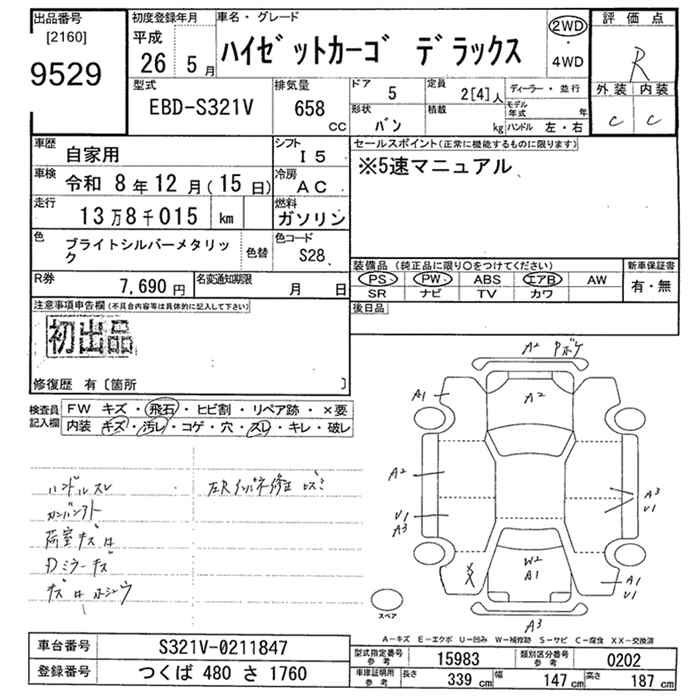 出品番号 初度登録年月 車名・グレード 評価点
[2160] 平成 2WD
9529 26 5月 ハイゼットカーゴ デラックス ・ R
4WD
型式 排気量 ドア 5 定員 2[4]人 ディーラー・並行 外装 内装
EBD-S321V 658 cc 形状 バン 積載 kg モデル年式 年 C C
ハンドル 左・右
車歴 自家用 シフト I5 セールスポイント(正常に機能するものに限ります)
車検 令和 8年 12月(15日) 冷房 AC ※5速マニュアル
走行 13万8千015 km 燃料 ガソリン
色 ブライトシルバーメタリック 色替 色コード S28
装備品(純正品に限り○をつけてください) 新車保証書
R券 7,690円 名変通知期限 月 日 PS PW ABS エアB AW 有・無
SR ナビ TV カワ
注意事項申告欄(不具合内容等は具体的に記入して下さい) 後日品
初出品
修復歴 有〔箇所 〕
検査員 FW キズ・飛石・ヒビ割・リペア跡・×要
記入欄 内装 キズ・汚レ・コゲ・穴・スレ・キレ・破レ
A2 Pボケ
A1 A2
A2 A3
U1 U1
A3
W2
A1 A1
U1
A3
ハンドルスレ
荷室キズ
Dミラーキズ
スペア
A-キズ E-エクボ U-凹み W-補修跡 S-サビ C-腐食 XX-交換済
車台番号 S321V-0211847
型式指定番号 参考 15983 類別区分番号 参考 0202
登録番号 つくば 480 さ 1760
車庫証明用 参考 長さ 339cm 幅 147cm 高さ 187cm